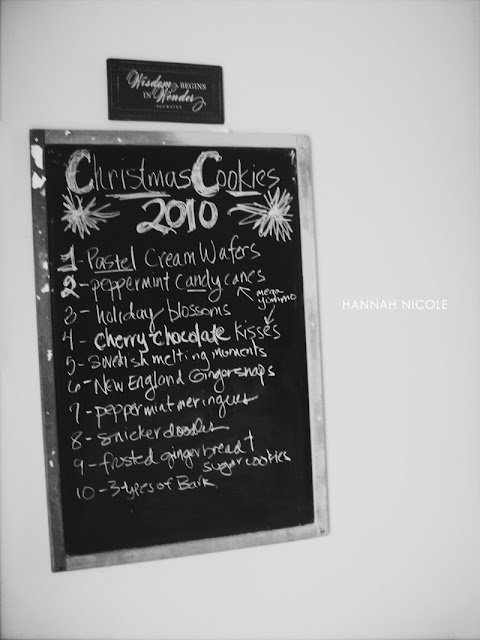 Wisdom BEGINS
IN Wonder
SOCRATES
Christmas Cookies
2010
1- Pastel Cream Wafers
2- peppermint candy canes
mega
yummo
3- holiday blossoms
4- cherry-chocolate kisses
5- Swedish melting moments
6- New England Gingersnaps
7- peppermint meringues
8- snickerdoodles
9- frosted gingerbread +
sugar cookies
10- 3 types of Bark
HANNAH NICOLE